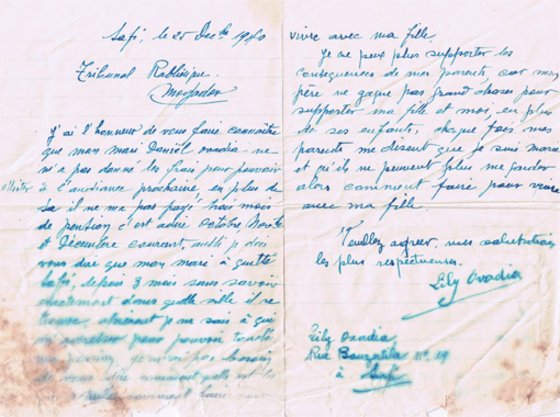 Safi, le 25 Decbre 1940
Tribunal Rabbinique.
Mogador
J'ai l'honneur de vous faire connaître
que mon mari Daniel Ovadia ne
m'a pas donné les frais pour pouvoir
assister à l'audiance prochaine, en plus de
sa il ne ma pas payé trois mois
de pension c'est adire Octobre, Novbre
et Décembre courant, inutile je dois
vous dire que mon mari à quitté
Safi, depuis 3 mois sans savoir
exactement dans quelle ville il se
trouve, je ne sais à qui
m'adresser pour pouvoir
pension je n'ai pas besoin
de vous dire comment
vivre avec ma fille.
Je ne peux plus supporter les
consequences de mes parents, car mon
père ne gagne pas grand choses pour
supporter ma fille et moi, en plus
de ses enfants, chaque fois mes
parents me disent que je suis mariée
et qu'ils ne peuvent plus me garder
alors comment faire pour vivre
avec ma fille.
Veuillez agréer, mes salutations
les plus respectueuses.
Lily Ovadia
Lily Ovadia,
Rue N° 29
à Safi